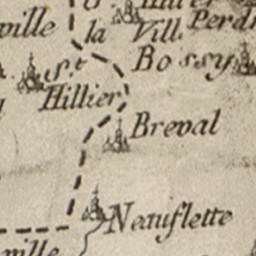 ville
la Vill. Perdr
Bossy
St.
Hillier
Breval
Neauflette
ville